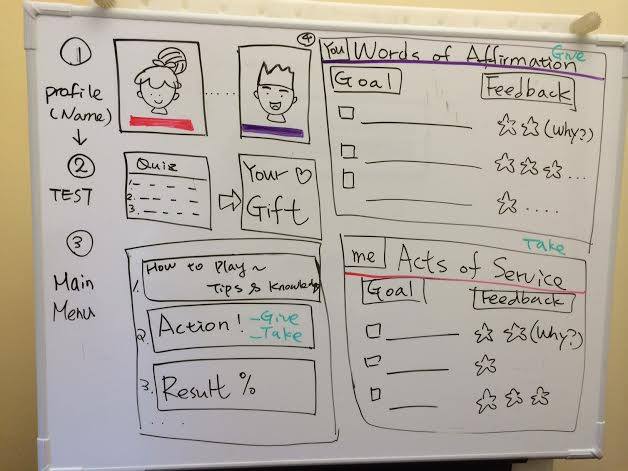 1
profile
(Name)
2
TEST
3
Main
Menu
Quiz
1.
2.
3.
Your ♡
Gift
1. How to Play~
Tips & Knowledge
2. Action! - Give
- Take
3. Result %
....
4
You Words of Affirmation Give
Goal Feedback
☆☆ (Why?)
☆☆☆...
☆....
Take
me Acts of Service
Goal Feedback
☆☆ (Why?)
☆
☆☆☆